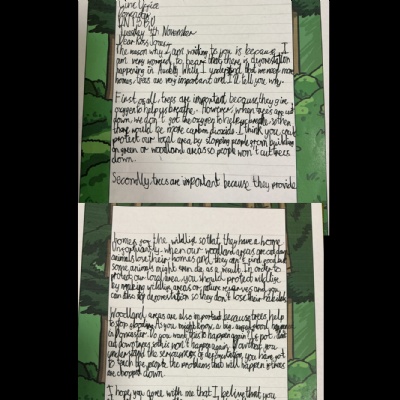 Tuesday 9th November
Dear Ross Jones
The reason why I am writing to you is because I
am very worried to hear that there is deforestation
happening in While I understand that we need more
homes, trees are very important and I'll tell you why.
First of all, trees are important because they give
oxygen to help us breathe. However, when trees are cut
down, we don't get the oxygen to help us breathe, when
there would be more carbon dioxide. I think you could
protect our local area by stopping people from building
on green or woodland areas so people won't cut trees
down.
Secondly, trees are important because they provide
homes for the wildlife so that they have a home.
when our woodland areas are cut down
animals lose their homes and they can't find food and
some animals might even die as a result. In order to
protect our local area, you should protect wildlife
by making wildlife areas or nature reserves and you
can also stop deforestation so they don't lose their habitats.
Woodland areas are also important because trees help
to stop flooding. As you might know, a big flood
in Do you want this to happen again? If not, don't
cut down trees so this won't happen again. Now that you
understand the of deforestation, you have got
to teach the people the problems that will happen if trees
are chopped down.
I hope you agree with me that I believe that you